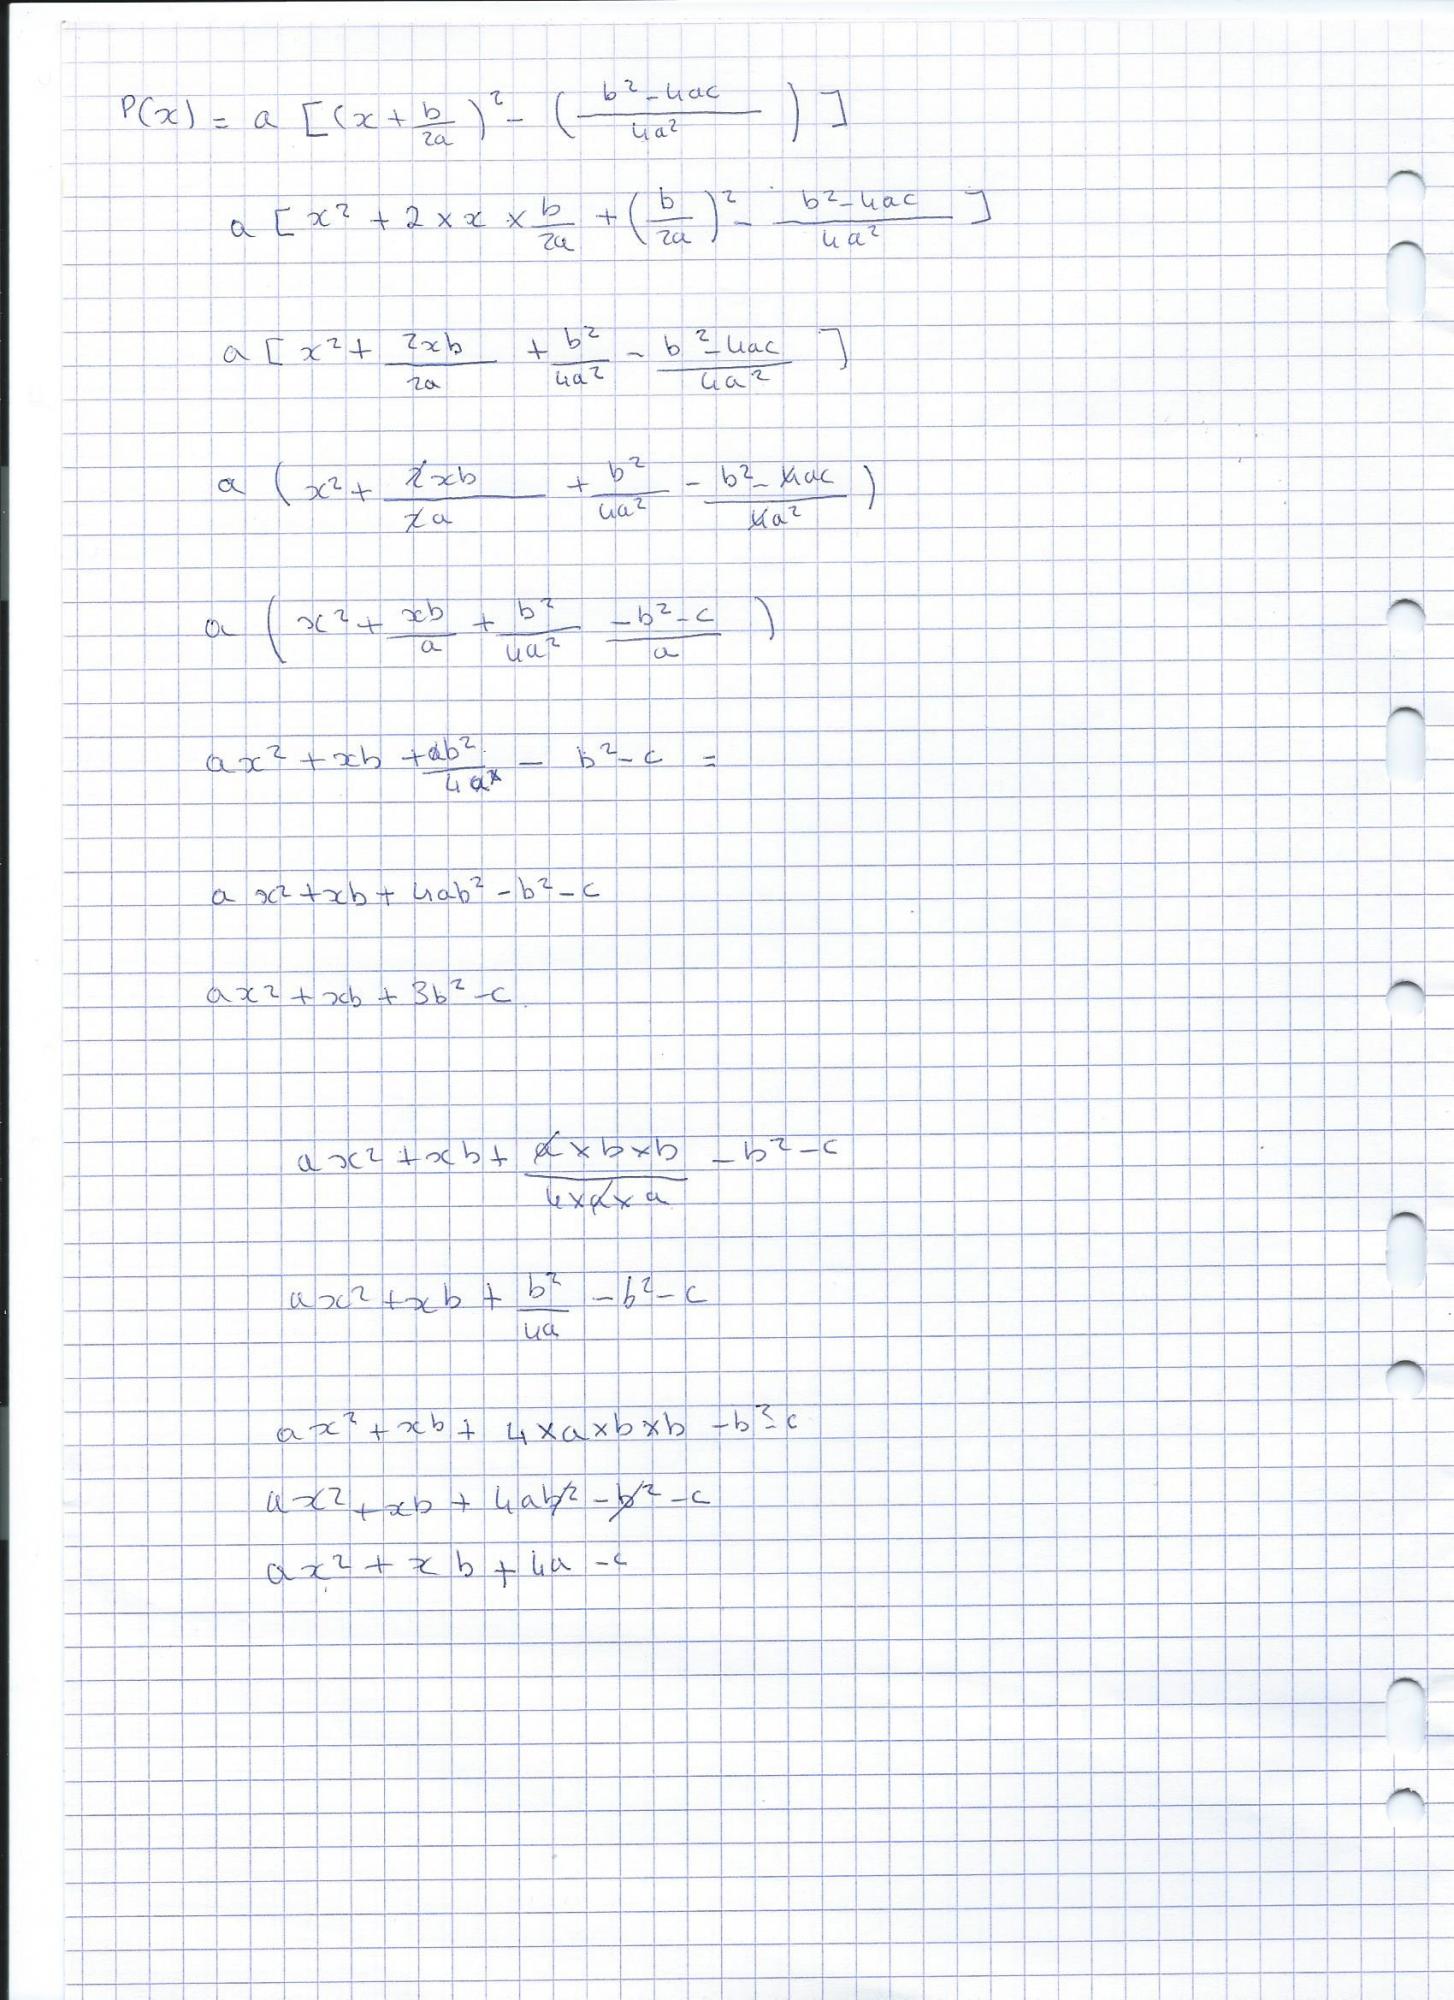 P(x) = a [(x + b/2a)² - (b² - 4ac / 4a²)]
a [x² + 2 × x × b/2a + (b/2a)² - b² - 4ac / 4a²]
a [x² + 2xb/2a + b²/4a² - b² - 4ac / 4a²]
a (x² + 2xb/2a + b²/4a² - b² - 4ac / 4a²)
a (x² + xb/a + b²/4a² -b² - c / a)
ax² + xb + ab²/4a² - b² - c =
a x² + xb + 4ab² - b² - c
ax² + xb + 3b² - c
ax² + xb + a×b×b / 4×a×a - b² - c
ax² + xb + b²/4a - b² - c
ax² + xb + 4×a×b×b - b² - c
ax² + xb + 4ab² - b² - c
ax² + xb + 4a - c